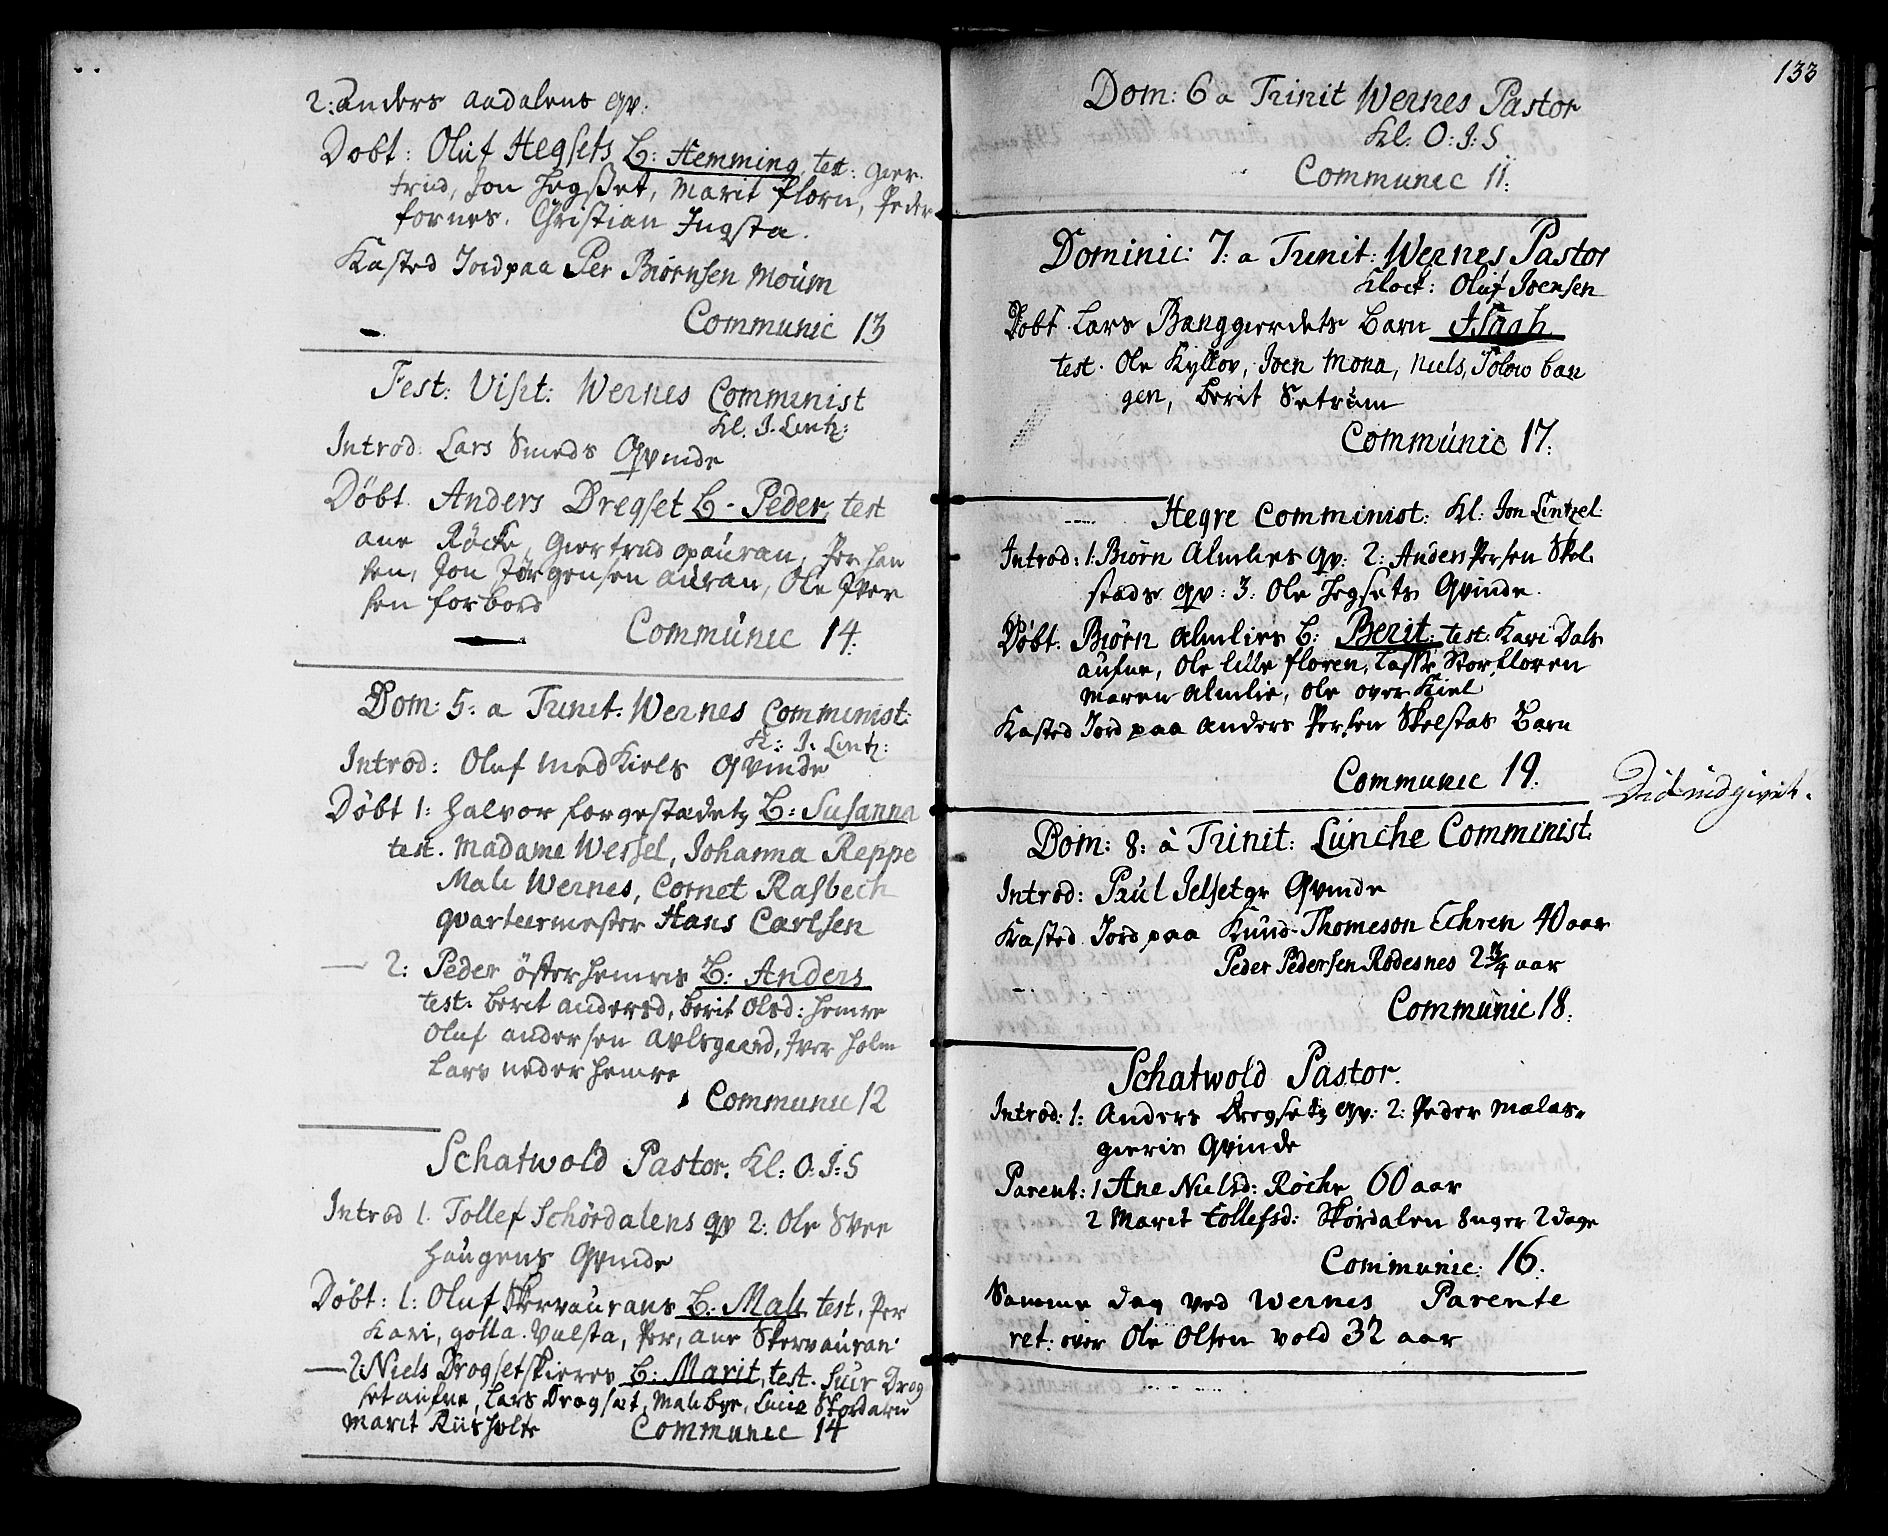 2: Anders Aadalens qv:
Døbt: Oluf Hegsets B: Hemming, test: Gier-
trud, Jon Hegset, Marit Florn, Peder
fornes. Christian Ingsta.
Kasted Jord paa Per Biørnsen Moum
Communic 13
Fest: Visit: Wernes Comminist
Kl. J. Lintz:
Introd: Lars Smeds Qvinde
Døbt Anders Dregset B - Peder, test
ane Røcke, Giertrud opauran, Per Han
sen, Jon Jørgensen auran, Ole Iver
sen forbord
Communic 14.
Dom: 5: a Trinit. Wernes Comminist:
Kl: J. Lintz:
Introd: Oluf Med Kiels Qvinde
Døbt 1: Halvor forgestadetz B: Susanna
test. Madame Wessel, Johanna Reppe
Mali Wernes, Cornet Rasbech
qvarteermester Hans Carlsen
2: Peder Østerhemris B: Anders
test. Berit andersd, Berit Olsd: Hemre
Oluf andersen Avlsgaard, Iver Holm
Lars nederhemre
Communic 12
Schatwold Pastor. Kl: O: J: S
Introd 1. Tollef Schørdalens qv 2: Ole Svee
Haugens Qvinde
Døbt: 1: Oluf Skervaurans B: Mali test. Per
Kari, golla Valsta, Per, ane Skervauran
2 Niels Drogset B: Marit, test. Drog
set Lars Drogset, Mali bye, Lucie
Marit Riisholte Communic 14
133
Dom: 6 a Trinit Wernes Pastor
Kl: O: J: S
Communic 11:
Dominic: 7: a Trinit: Wernes Pastor
Klock: Oluf Joensen
Døbt Lars Banggierdets Barn Isaah
test. Ole Kyllov, Joen Mona, Niels, ban
gen, Berit Setrum
Communic 17.
Hegre Comminist: Kl: Jon Lintzel
Introd: 1: Biørn Almlies qv: 2: Anders Persen Skel
stads qv: 3: Ole Hegsets Qvinde.
Døbt. Biørn Almlies B: Berit: test: Kari Dals
aufne, Ole Lille floren, Storfloren
Maren Almlie, Ole over Kiel
Kasted Jord paa Anders Persen Skelstas Barn
Communic 19.
Did indgivit.
Dom: 8: a Trinit: Lunche Comminist.
Introd: Paul Jelset Qvinde
Kasted Jord paa Knud Thomeson Echren 40 aar
Peder Pedersen Rodesnes 2 3/4 aar
Communic 18.
Schatwold Pastor.
Introd: 1: Anders Dregsetz qv: 2: Peder Malas-
gieris Qvinde
Parent: 1 Ane Nielsd: Røche 60 aar
2 Marit Tollefsd: Skørdalen 8 uger 2 dage
Communic: 16.
Samme dag ved Wernes Parente
ret: over Ole Olsen vold 32 aar